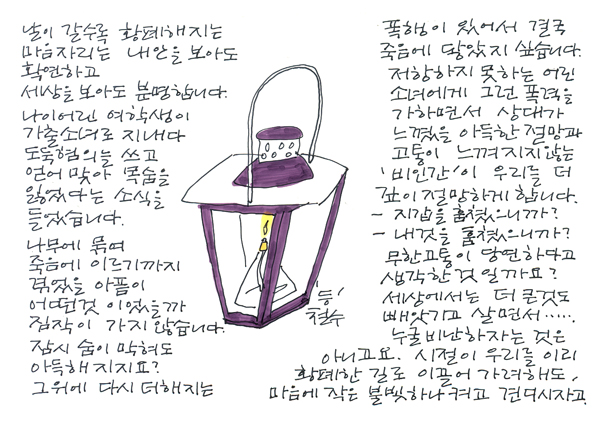 날이 갈수록 황폐해지는
마음자리는 내안을 보아도
확연하고
세상을 보아도 분명합니다.
나이어린 여학생이
가출소녀로 지내다
도둑혐의를 쓰고
얻어 맞아 목숨을
잃었다는 소식을
들었습니다.
나무에 묶여
죽음에 이르기까지
겪었을 아픔이
어떠런것 이었을까
짐작이 가지 않습니다.
잠시 숨이 막혀도
아득해 지지요?
그위에 다시 더해지는
폭행이 있어서 결국
죽음에 닿았지 싶습니다.
저항하지 못하는 어린
소녀에게 그런 폭력을
가하면서 상대가
느꼈을 아득한 절망과
고통이 느껴지지않는
'비인간'이 우리를 더
깊이 절망하게 합니다.
- 지갑을 훔쳤으니까?
- 내것을 훔쳤으니까?
무한고통이 당연하다고
생각한 것 일까요?
세상에서는 더 큰것도
빼앗기고 살면서.....
누굴 비난하자는 것은
아니고요. 시절이 우리를 이리
황폐한 길로 이끌어 가려해도,
마음에 작은 불빛하나 켜고 견디시자고.
'등'
철수